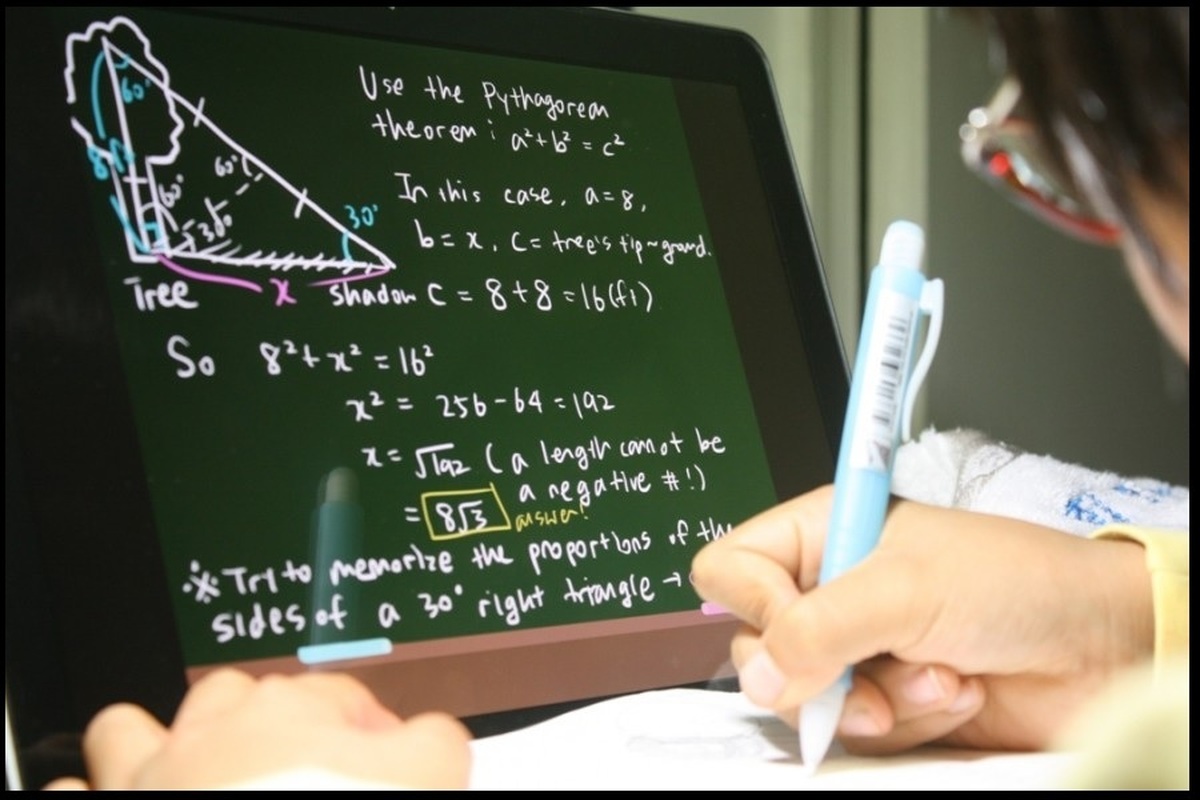 60°
8ft
60°
60°
30°
30°
Tree
x
shadow
Use the Pythagorean
theorem: a²+b²=c²
In this case, a=8,
b=x, c=tree's tip~ground.
c=8+8=16(ft)
So 8²+x²=16²
x²=256-64=192
x=√192 (a length cannot be
a negative #!)
=8√3 answer!
※Try to memorize the proportions of the
sides of a 30° right triangle→